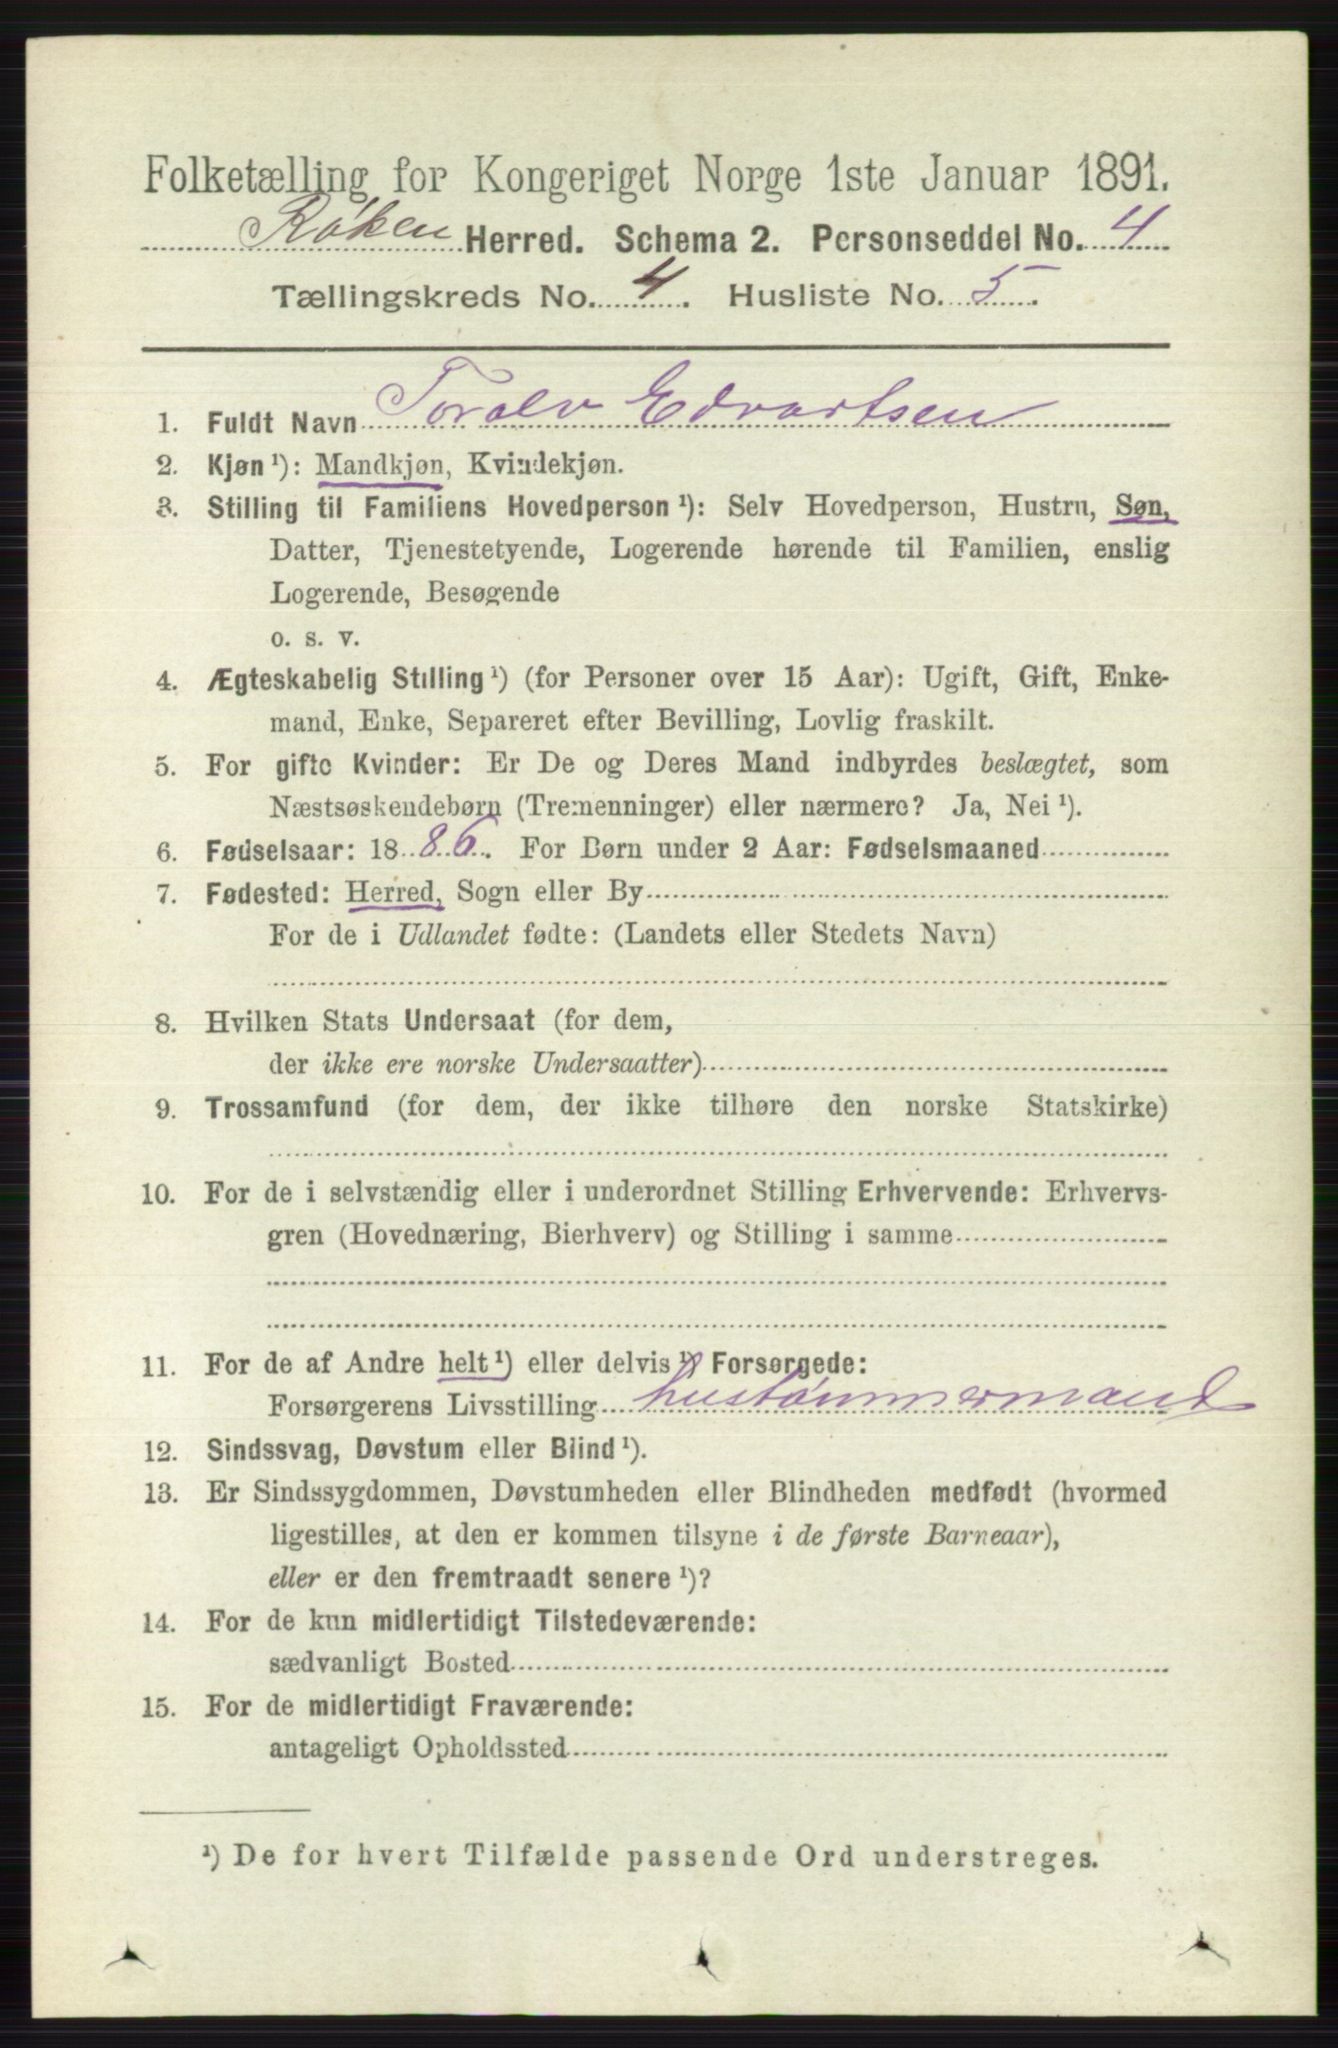 Folketælling for Kongeriget Norge 1ste Januar 1891.
Røken Herred. Schema 2. Personseddel No. 4
Tællingskreds No. 4. Husliste No. 5.
1. Fuldt Navn Toralv Edvartsen
2. Kjøn ¹): Mandkjøn, Kvindekjøn.
3. Stilling til Familiens Hovedperson ¹): Selv Hovedperson, Hustru, Søn,
Datter, Tjenestetyende, Logerende hørende til Familien, enslig
Logerende, Besøgende
o. s. v.
4. Ægteskabelig Stilling ¹) (for Personer over 15 Aar): Ugift, Gift, Enke-
mand, Enke, Separeret efter Bevilling, Lovlig fraskilt.
5. For gifte Kvinder: Er De og Deres Mand indbyrdes beslægtet, som
Næstsøskendebørn (Tremenninger) eller nærmere? Ja, Nei ¹).
6. Fødselsaar: 1886. For Børn under 2 Aar: Fødselsmaaned
7. Fødested: Herred, Sogn eller By
For de i Udlandet fødte: (Landets eller Stedets Navn)
8. Hvilken Stats Undersaat (for dem,
der ikke ere norske Undersaatter)
9. Trossamfund (for dem, der ikke tilhøre den norske Statskirke)
10. For de i selvstændig eller i underordnet Stilling Erhvervende: Erhvervs-
gren (Hovednæring, Bierhverv) og Stilling i samme
11. For de af Andre helt ¹) eller delvis ¹) Forsørgede:
Forsørgerens Livsstilling hustømmermand
12. Sindssvag, Døvstum eller Blind ¹).
13. Er Sindssygdommen, Døvstumheden eller Blindheden medfødt (hvormed
ligestilles, at den er kommen tilsyne i de første Barneaar),
eller er den fremtraadt senere ¹)?
14. For de kun midlertidigt Tilstedeværende:
sædvanligt Bosted
15. For de midlertidigt Fraværende:
antageligt Opholdssted
¹) De for hvert Tilfælde passende Ord understreges.